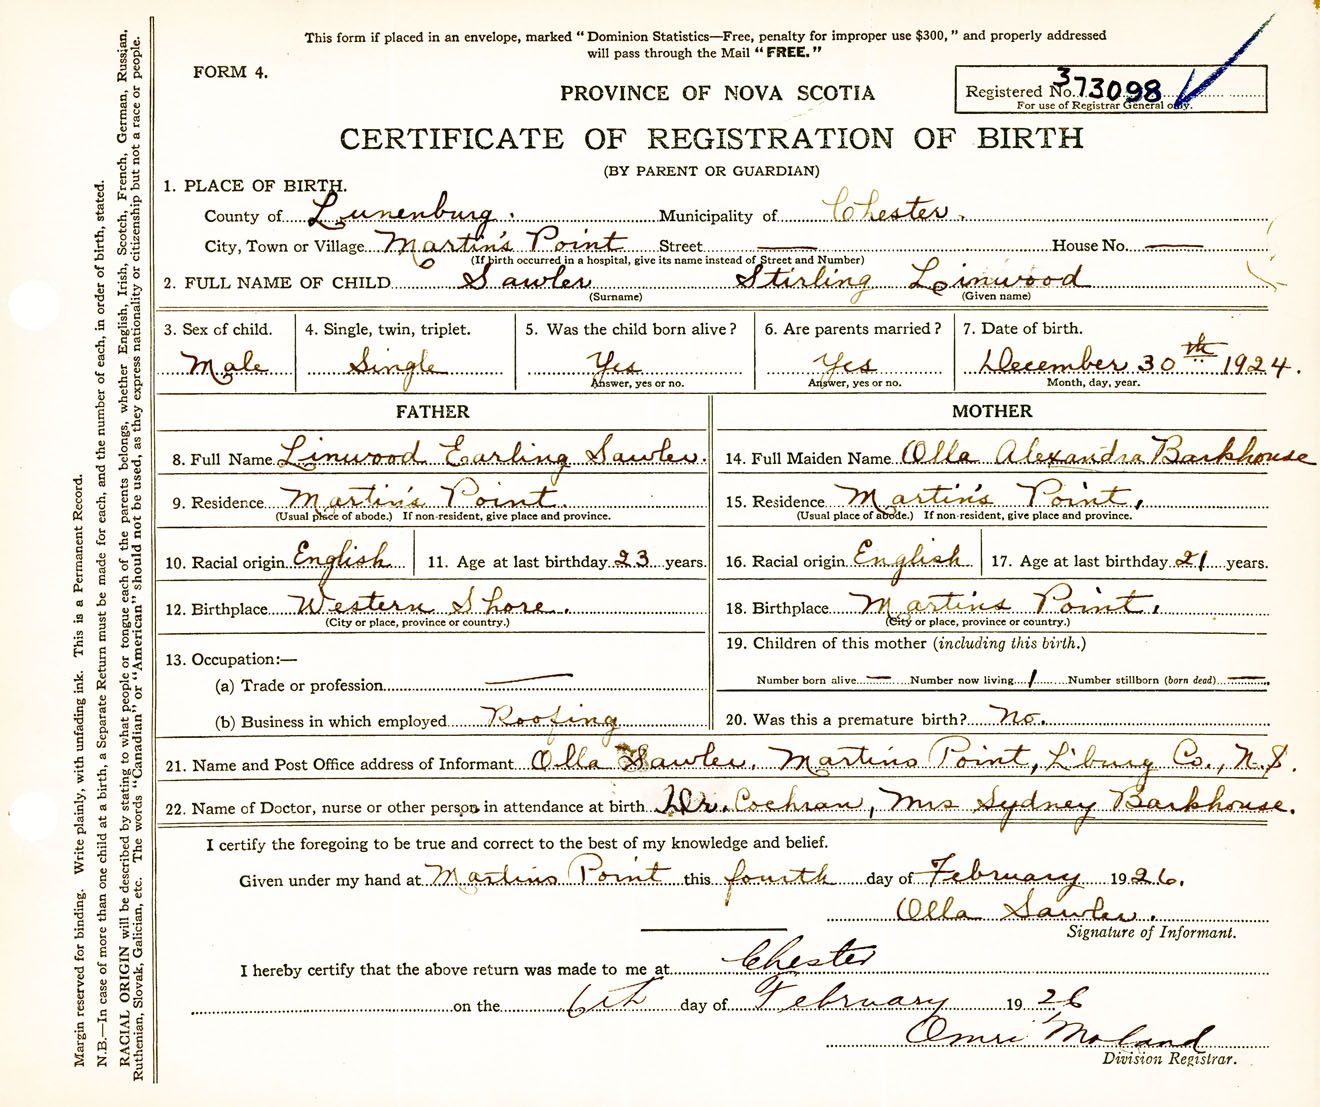 This form if placed in an envelope, marked "Dominion Statistics—Free, penalty for improper use $300," and properly addressed
will pass through the Mail "FREE."
FORM 4.
Registered No. 373098
For use of Registrar General only.
PROVINCE OF NOVA SCOTIA
CERTIFICATE OF REGISTRATION OF BIRTH
(BY PARENT OR GUARDIAN)
1. PLACE OF BIRTH.
County of Lunenburg. Municipality of Chester.
City, Town or Village Martin's Point Street — House No. —
(If birth occurred in a hospital, give its name instead of Street and Number)
2. FULL NAME OF CHILD Sawler Stirling Linwood
(Surname) (Given name)
3. Sex of child. 4. Single, twin, triplet. 5. Was the child born alive? 6. Are parents married? 7. Date of birth.
Male Single Yes Yes December 30th 1924.
Answer, yes or no. Answer, yes or no. Month, day, year.
FATHER
8. Full Name Linwood Earling Sawler.
9. Residence Martin's Point.
(Usual place of abode.) If non-resident, give place and province.
10. Racial origin English 11. Age at last birthday 23 years.
12. Birthplace Western Shore.
(City or place, province or country.)
13. Occupation:—
(a) Trade or profession —
(b) Business in which employed Roofing
MOTHER
14. Full Maiden Name Olla Alexandra Barkhouse
15. Residence Martin's Point,
(Usual place of abode.) If non-resident, give place and province.
16. Racial origin English 17. Age at last birthday 21 years.
18. Birthplace Martins Point,
(City or place, province or country.)
19. Children of this mother (including this birth.)
Number born alive — Number now living 1 Number stillborn (born dead) —
20. Was this a premature birth? No.
21. Name and Post Office address of Informant Olla Sawler, Martins Point, L'burg Co., N.S.
22. Name of Doctor, nurse or other person in attendance at birth Dr. Cochran, Mrs Sydney Barkhouse.
I certify the foregoing to be true and correct to the best of my knowledge and belief.
Given under my hand at Martins Point this fourth day of February 1926.
Olla Sawler.
Signature of Informant.
I hereby certify that the above return was made to me at Chester
on the 6th day of February 1926
Omri Moland
Division Registrar.
Margin reserved for binding. Write plainly, with unfading ink. This is a Permanent Record.
N.B.—In case of more than one child at a birth, a Separate Return must be made for each, and the number of each, in order of birth, stated.
RACIAL ORIGIN will be described by stating to what people or tongue each of the parents belongs, whether English, Irish, Scotch, French, German, Russian,
Ruthenian, Slovak, Galician, etc. The words "Canadian" or "American" should not be used, as they express nationality or citizenship but not a race or people.